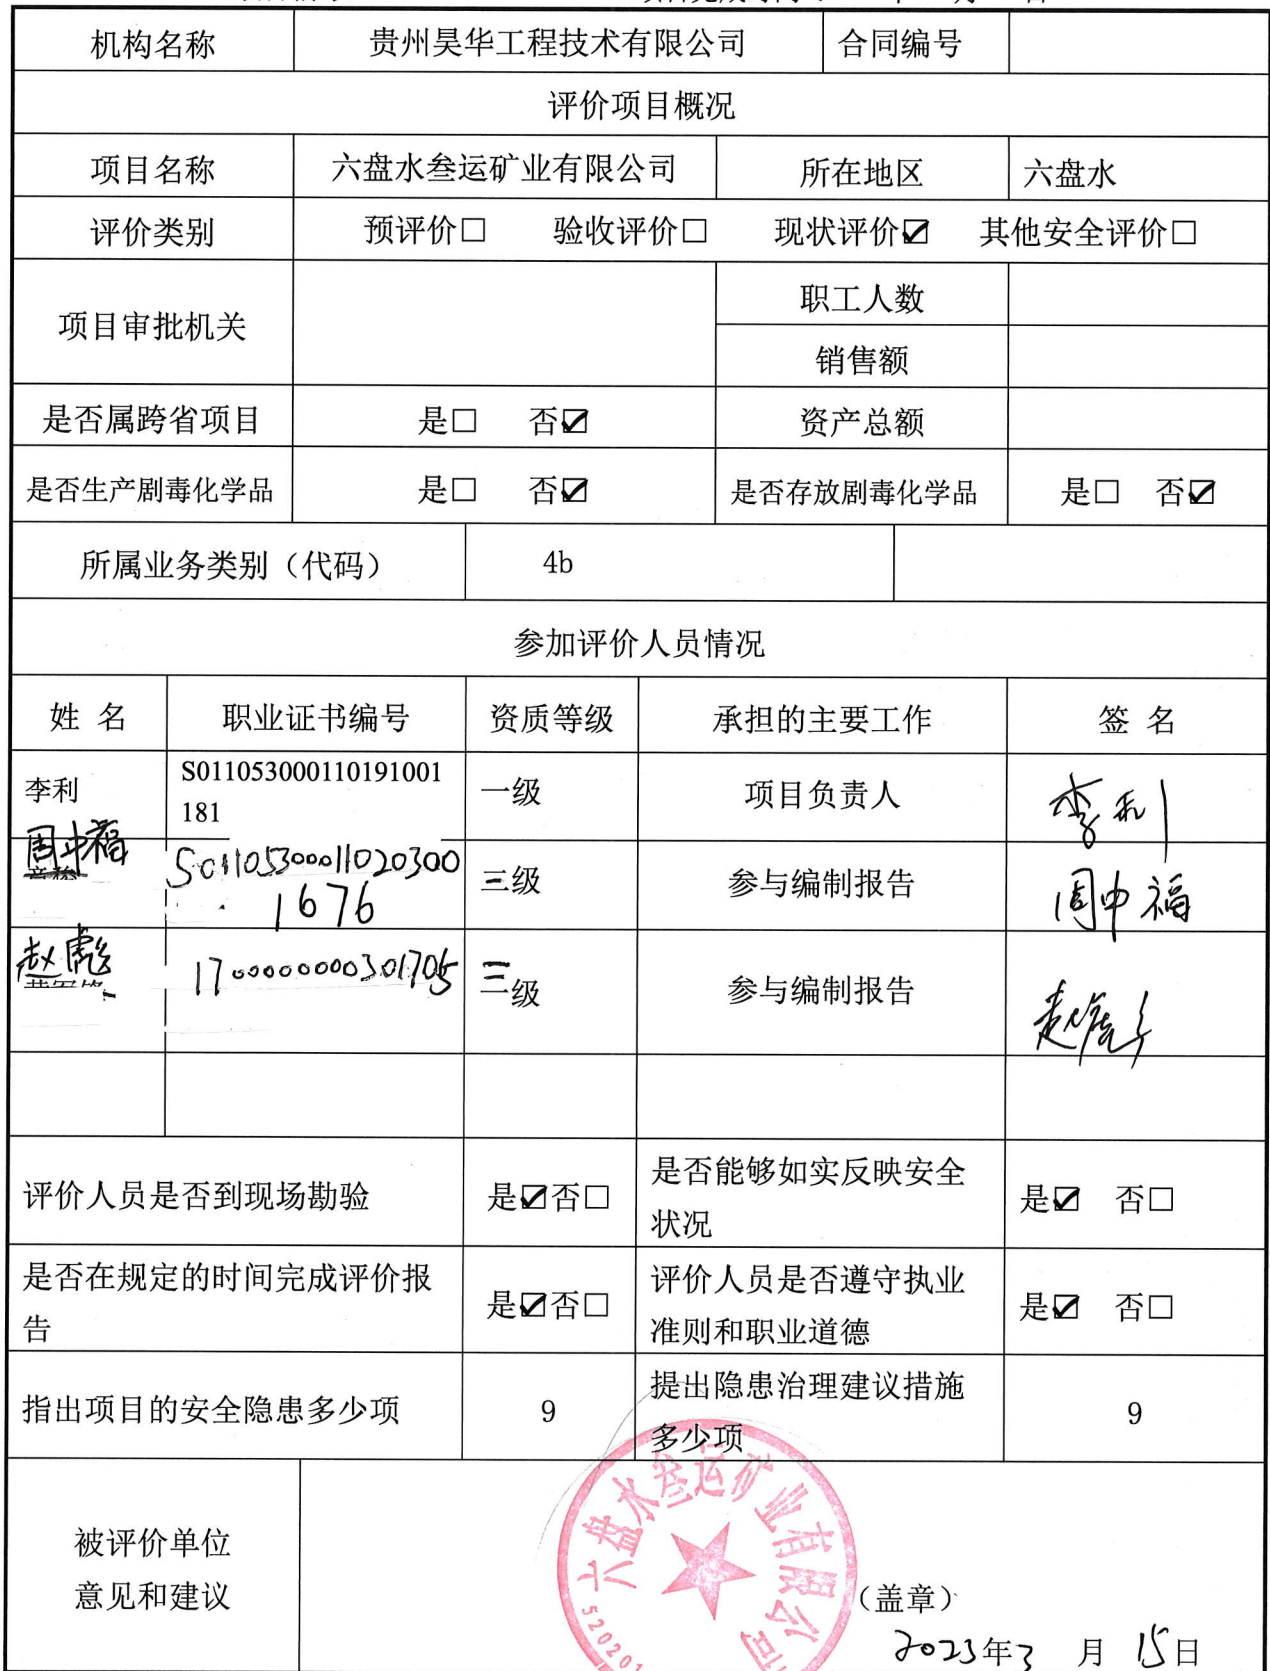 机构名称 贵州昊华工程技术有限公司 合同编号
评价项目概况
项目名称 六盘水叁运矿业有限公司 所在地区 六盘水
评价类别 预评价□ 验收评价□ 现状评价☑ 其他安全评价□
项目审批机关 职工人数
销售额
是否属跨省项目 是□ 否☑ 资产总额
是否生产剧毒化学品 是□ 否☑ 是否存放剧毒化学品 是□ 否☑
所属业务类别（代码） 4b
参加评价人员情况
姓 名 职业证书编号 资质等级 承担的主要工作 签 名
李利 S011053000110191001 一级 项目负责人 李利
181
周中福 S01105300011020300 三级 参与编制报告 周中福
1676
赵彪 1700000000301705 三级 参与编制报告 赵彪
评价人员是否到现场勘验 是☑否□ 是否能够如实反映安全 是☑ 否□
状况
是否在规定的时间完成评价报 是☑否□ 评价人员是否遵守执业 是☑ 否□
告 准则和职业道德
指出项目的安全隐患多少项 9 提出隐患治理建议措施 9
多少项
六盘水叁运矿业有限公司
520201
被评价单位
意见和建议
（盖章）
2023年3 月 15日